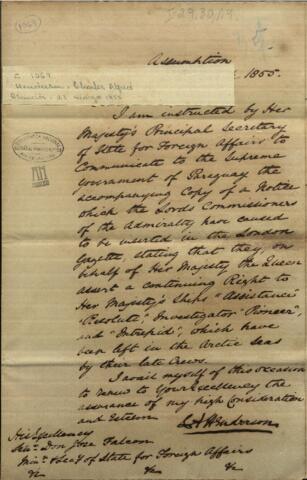 I-29,30,19.
1069
Assumption
1855.
C 1069
Henderson - Charles Alfred
I am instructed by Her
Majesty's Principal Secretary
of State for Foreign Affairs to
Communicate to the Supreme
Government of Paraguay the
accompanying Copy of a Notice
which the Lords Commissioners
of the Admiralty have caused
to be inserted in the London
Gazette, stating that they, on
behalf of Her Majesty the Queen
assert a continuing Right to
Her Majesty's Ships "Assistance"
"Resolute", Investigator "Pioneer",
and "Intrepid", which have
been left in the Arctic Seas
by their late Crews.
I avail myself of this occasion
to renew to Your Excellency the
assurance of my high Consideration
and Esteem
C A Henderson
His Excellency
Don Jose Falcon
of State for Foreign Affairs
&c &c &c